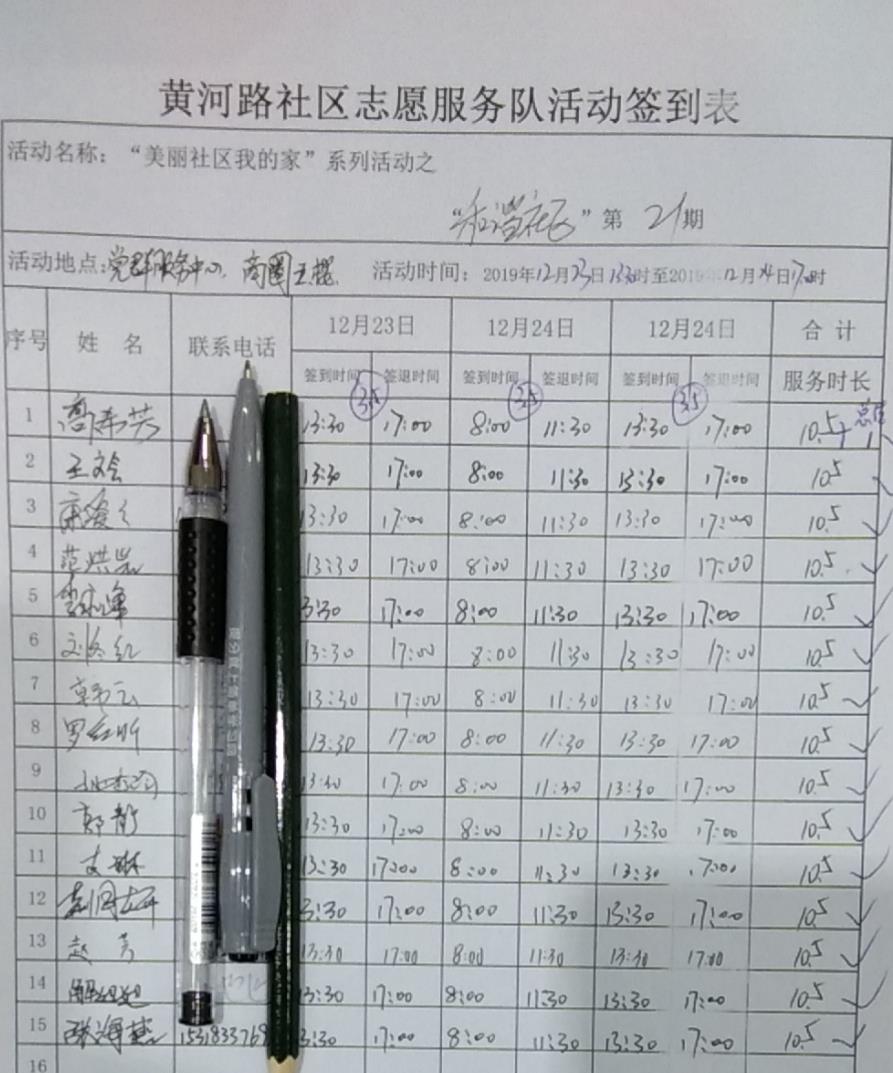 黄河路社区志愿服务队活动签到表
活动名称：“美丽社区我的家”系列活动之
“和谐社区”第 21 期
活动地点：党群服务中心、商圈 活动时间：2019年12月23日13:30时至2019年12月24日17:00时
序号 姓 名 联系电话 12月23日 12月24日 12月24日 合 计
签到时间 签退时间 签到时间 签退时间 签到时间 签退时间 服务时长
3.5 3.5 3.5
1 13:30 17:00 8:00 11:30 13:30 17:00 10.5
2 王文会 13:30 17:00 8:00 11:30 13:30 17:00 10.5
3 13:30 17:00 8:00 11:30 13:30 17:00 10.5
4 范洪岩 13:30 17:00 8:00 11:30 13:30 17:00 10.5
5 3:30 17:00 8:00 11:30 13:30 17:00 10.5
6 刘冬红 13:30 17:00 8:00 11:30 13:30 17:00 10.5
7 13:30 17:00 8:00 11:30 13:30 17:00 10.5
8 罗红昕 13:30 17:00 8:00 11:30 13:30 17:00 10.5
9 13:30 17:00 8:00 11:30 13:30 17:00 10.5
10 郑静 13:30 17:00 8:00 11:30 13:30 17:00 10.5
11 艾琳 13:30 17:00 8:00 11:30 13:30 17:00 10.5
12 3:30 17:00 8:00 11:30 13:30 17:00 10.5
13 赵芳 13:30 17:00 8:00 11:30 13:30 17:00 10.5
14 3:30 17:00 8:00 11:30 13:30 17:00 10.5
15 1531833769 3:30 17:00 8:00 11:30 13:30 17:00 10.5
16